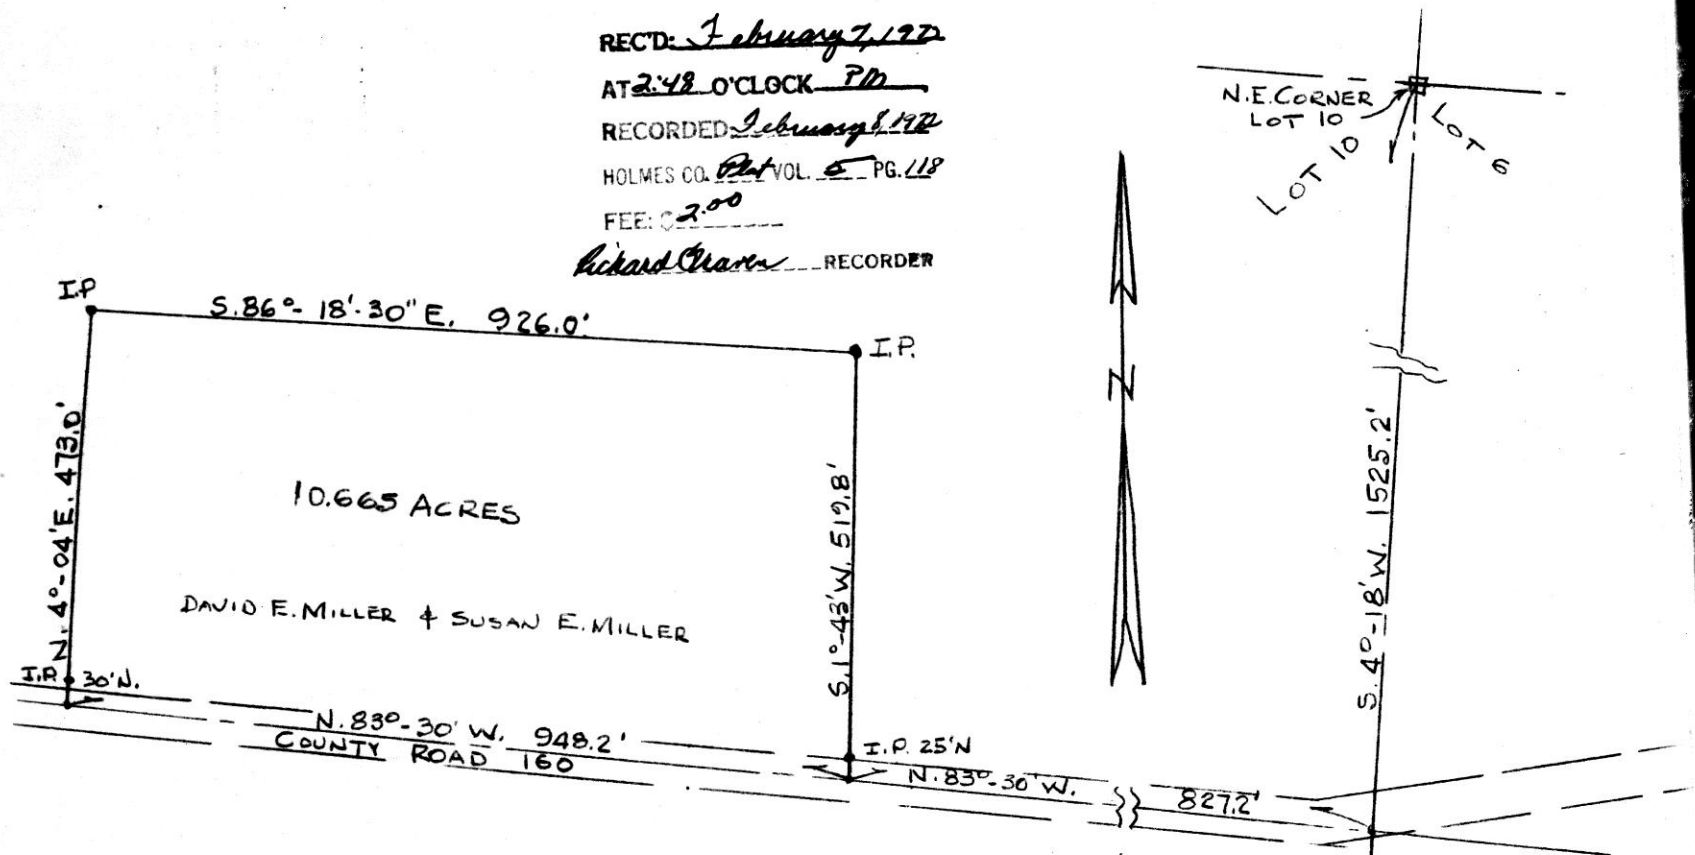 REC'D: February 7, 1972
AT 2:48 O'CLOCK PM
RECORDED February 8, 1972
HOLMES CO. Plat VOL. 5 PG. 118
FEE: $ 2.00
Richard Craven RECORDER
N.E. CORNER
LOT 10
LOT 10
LOT 6
I.P.
S. 86°- 18'- 30" E. 926.0'
I.P.
N. 4°- 04' E. 473.0'
10.665 ACRES
DAVID E. MILLER & SUSAN E. MILLER
S. 1°- 43' W. 519.8'
N
S. 4°- 18' W. 1525.2'
I.P. 30' N.
N. 83°- 30' W. 948.2'
COUNTY ROAD 160
I.P. 25' N
N. 83°- 30' W. 827.2'